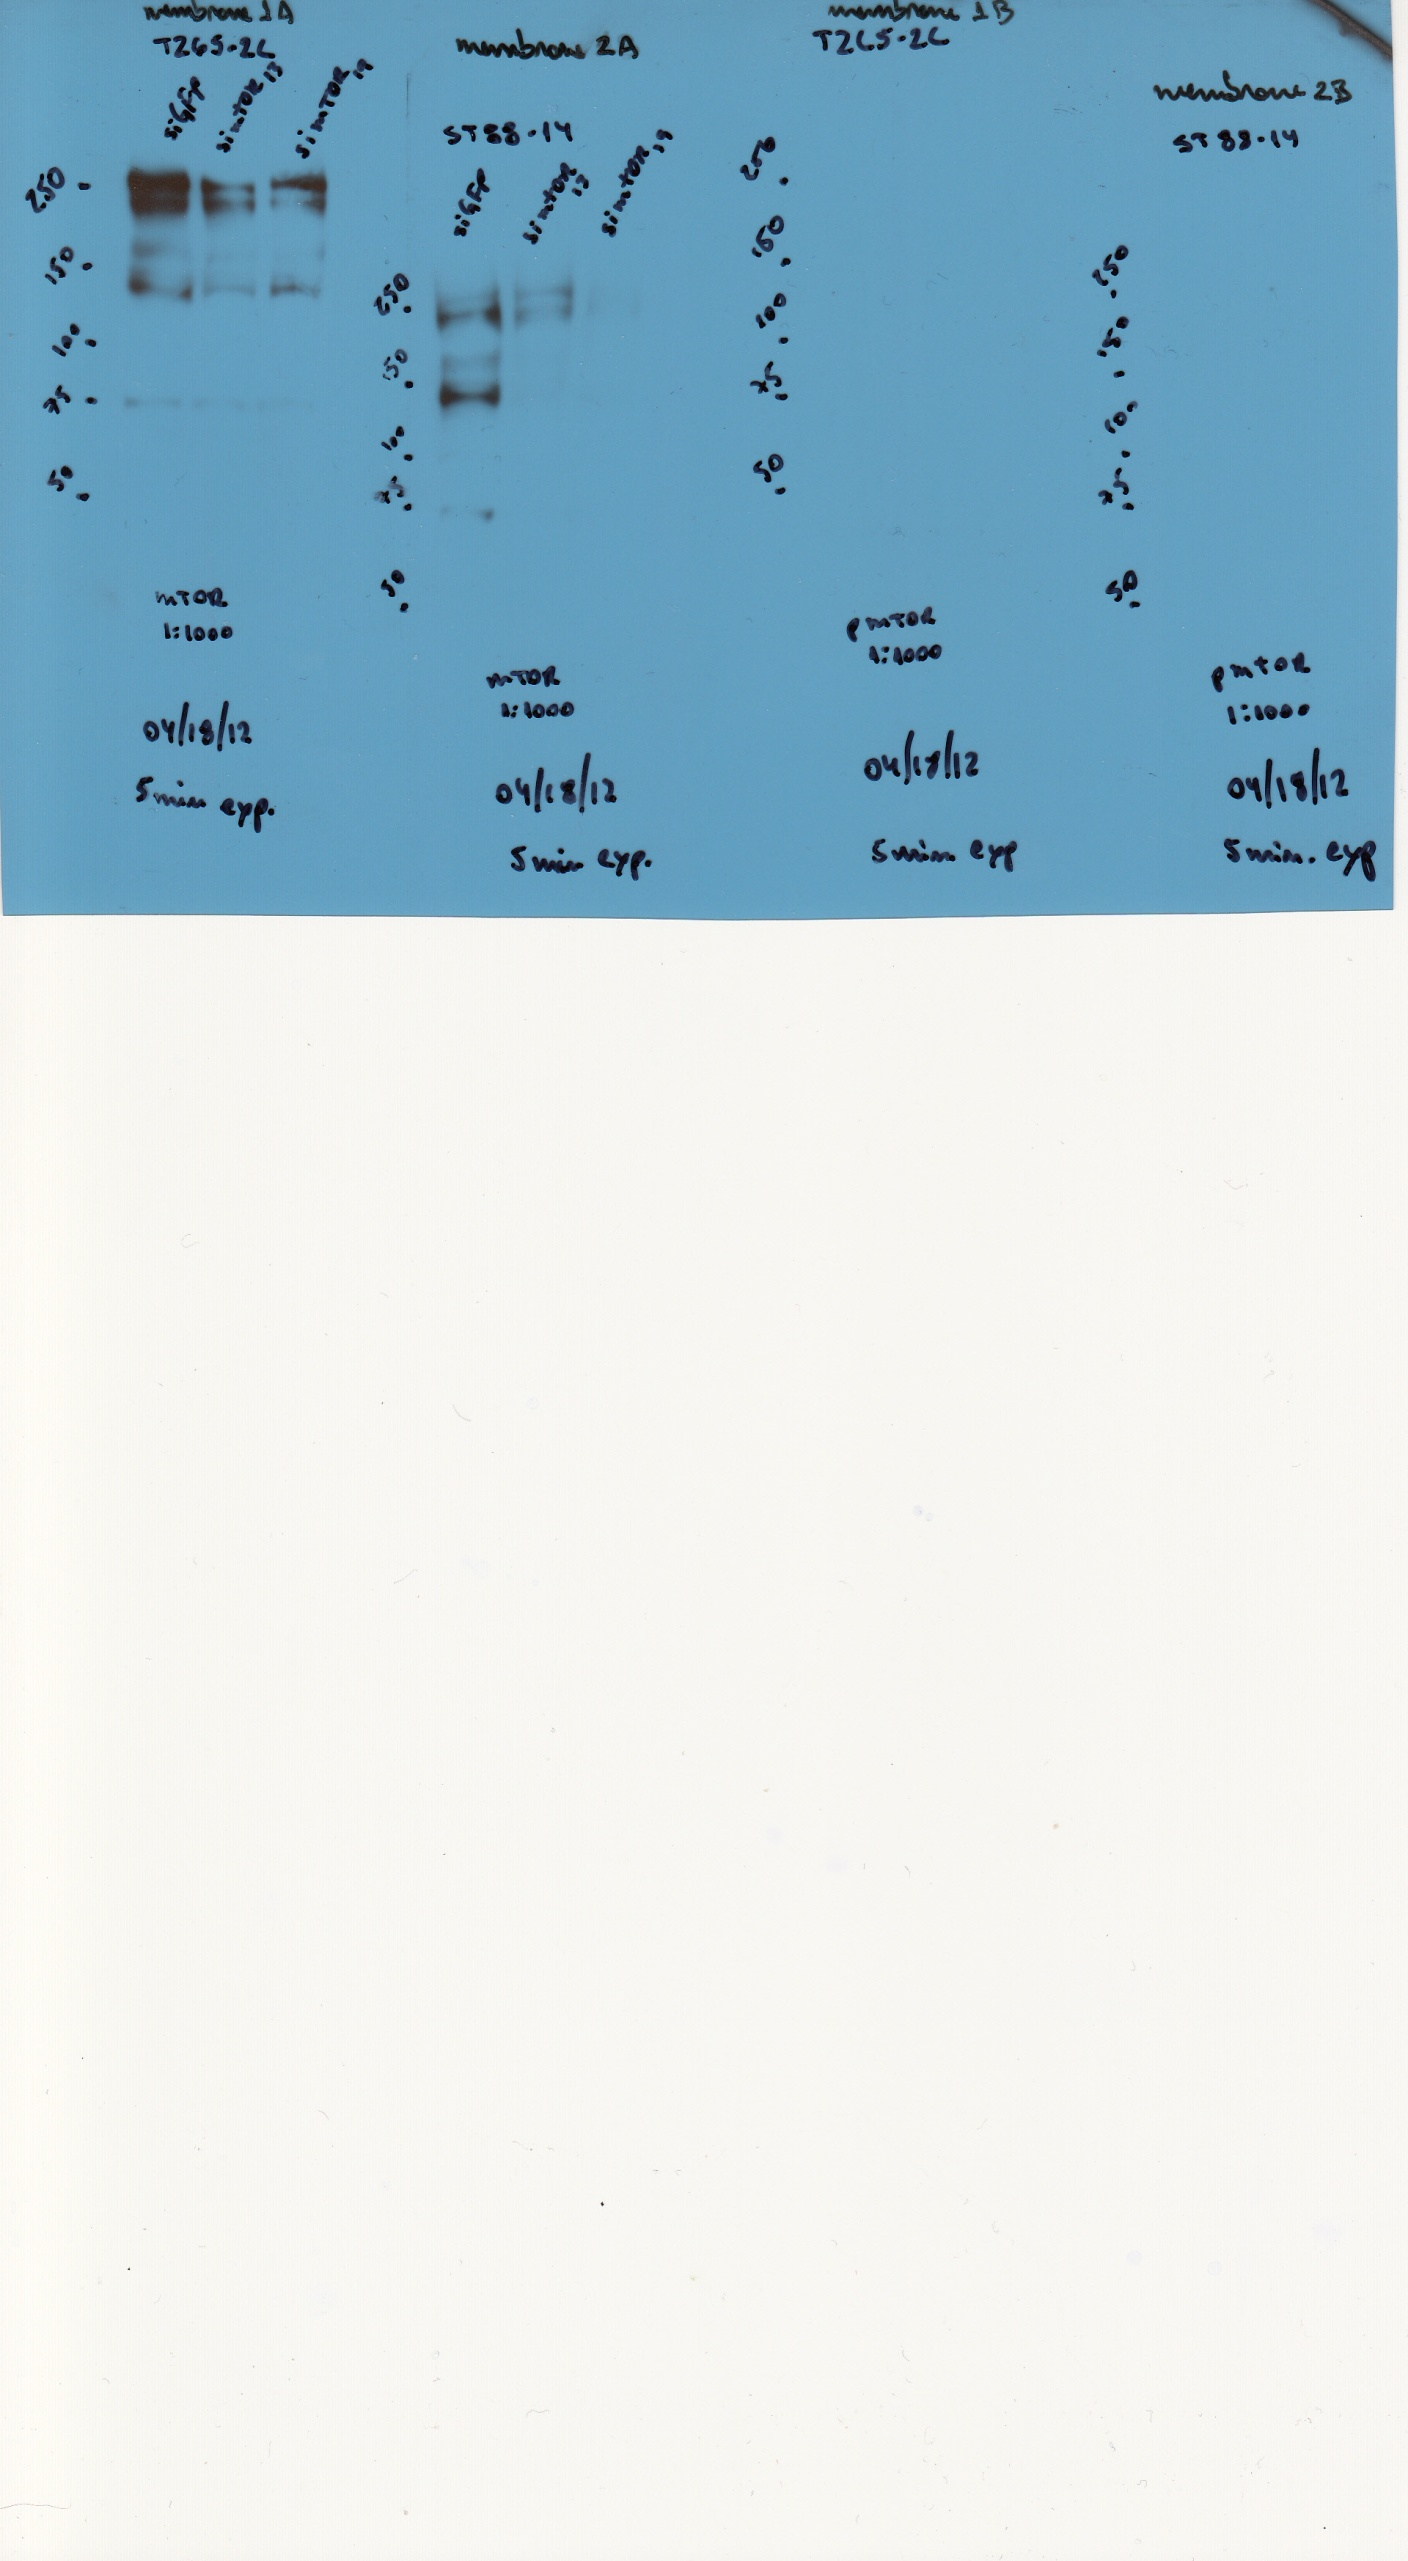 membrane 1A
T265-2C
siGFP
simTOR 13
simTOR 19
250
150
100
75
50
mTOR
1:1000
04/18/12
5min exp.
membrane 2A
ST88-14
siGFP
simTOR 13
simTOR 19
250
150
100
75
50
mTOR
1:1000
04/18/12
5min exp.
membrane 1B
T265-2C
250
150
100
75
50
pmTOR
1:1000
04/18/12
5min. exp
membrane 2B
ST88-14
250
150
100
75
50
pmTOR
1:1000
04/18/12
5min. exp